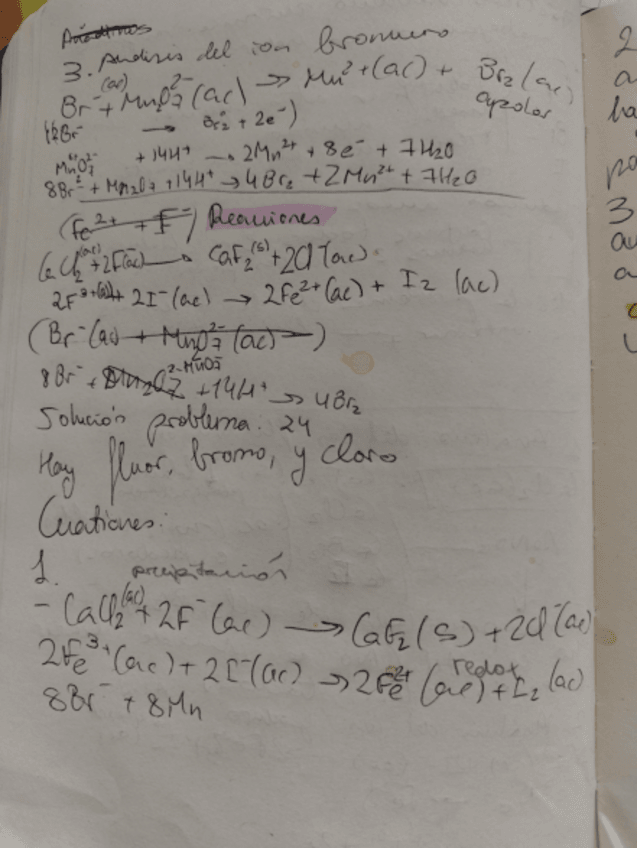 3. Análisis del ion bromuro
Br⁻(ac) + Mn₂O₇²⁻(ac) → Mn²⁺(ac) + Br₂(ac)
apolar
Br⁻ → Br₂ + 2e⁻)
MnO₇²⁻ + 14H⁺ → 2Mn²⁺ + 8e⁻ + 7H₂O
8Br⁻ + Mn₂O₇ + 14H⁺ → 4Br₂ + 2Mn²⁺ + 7H₂O
(Fe²⁺ + I⁻) Reacciones
CaCl₂(ac) + 2F⁻(ac) → CaF₂(s) + 2Cl⁻(ac)
2F³⁺(ac) + 2I⁻(ac) → 2Fe²⁺(ac) + I₂ (ac)
(Br⁻(ac) + MnO₇²⁻(ac) →)
8Br⁻ + + 14H⁺ → 4Br₂
Solución problema: 24
Hay fluor, bromo, y cloro
Cuestiones:
1. precipitación
- CaCl₂(ac) + 2F⁻(ac) → CaF₂(s) + 2Cl⁻(ac)
2Fe³⁺(ac) + 2I⁻(ac) → 2Fe²⁺(ac) + I₂(ac)
redox
8Br⁻ + 8Mn
2
a
ha
po
3
au
a